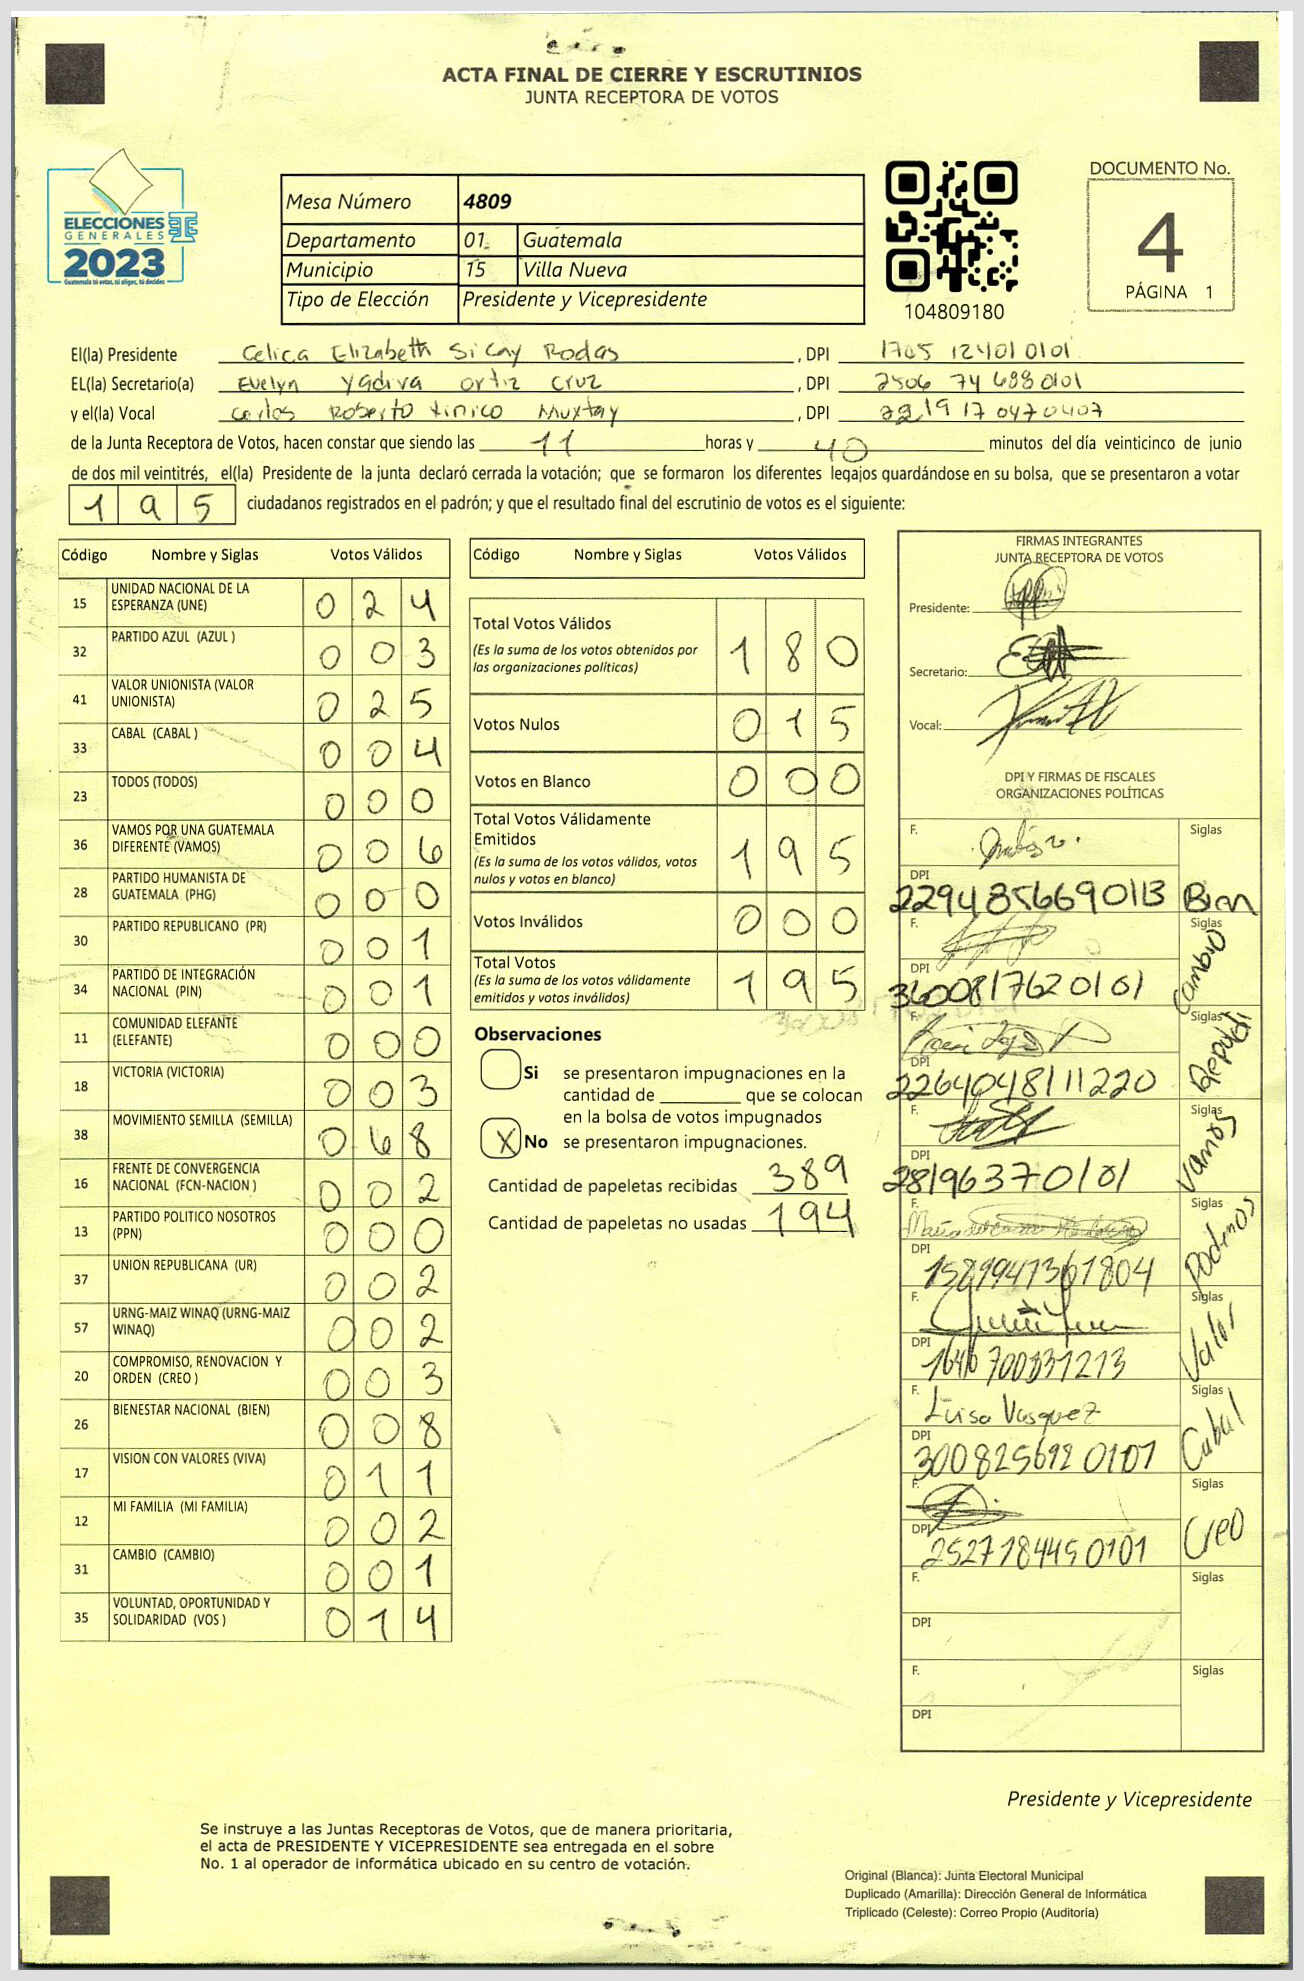 ACTA FINAL DE CIERRE Y ESCRUTINIOS
JUNTA RECEPTORA DE VOTOS
ELECCIONES
GENERALES
2023
Guatemala tú votas, tú eliges, tú decides
Mesa Número 4809
Departamento 01 Guatemala
Municipio 15 Villa Nueva
Tipo de Elección Presidente y Vicepresidente
104809180
DOCUMENTO No.
4
PÁGINA 1
El(la) Presidente Celica Elizabeth Sicay Rodas, DPI 1705 12401 0101
EL(la) Secretario(a) Evelyn Yadiva Ortiz Cruz, DPI 2506 74 688 0101
y el(la) Vocal Carlos Roberto Xinico Muxtay, DPI 2219 17047 0407
de la Junta Receptora de Votos, hacen constar que siendo las 11 horas y 40 minutos del día veinticinco de junio
de dos mil veintitrés, el(la) Presidente de la junta declaró cerrada la votación; que se formaron los diferentes legajos guardándose en su bolsa, que se presentaron a votar
195 ciudadanos registrados en el padrón; y que el resultado final del escrutinio de votos es el siguiente:
Código Nombre y Siglas Votos Válidos
15 UNIDAD NACIONAL DE LA ESPERANZA (UNE) 0 2 4
32 PARTIDO AZUL (AZUL ) 0 0 3
41 VALOR UNIONISTA (VALOR UNIONISTA) 0 2 5
33 CABAL (CABAL ) 0 0 4
23 TODOS (TODOS) 0 0 0
36 VAMOS POR UNA GUATEMALA DIFERENTE (VAMOS) 0 0 6
28 PARTIDO HUMANISTA DE GUATEMALA (PHG) 0 0 0
30 PARTIDO REPUBLICANO (PR) 0 0 1
34 PARTIDO DE INTEGRACIÓN NACIONAL (PIN) 0 0 1
11 COMUNIDAD ELEFANTE (ELEFANTE) 0 0 0
18 VICTORIA (VICTORIA) 0 0 3
38 MOVIMIENTO SEMILLA (SEMILLA) 0 6 8
16 FRENTE DE CONVERGENCIA NACIONAL (FCN-NACION ) 0 0 2
13 PARTIDO POLITICO NOSOTROS (PPN) 0 0 0
37 UNION REPUBLICANA (UR) 0 0 2
57 URNG-MAIZ WINAQ (URNG-MAIZ WINAQ) 0 0 2
20 COMPROMISO, RENOVACION Y ORDEN (CREO ) 0 0 3
26 BIENESTAR NACIONAL (BIEN) 0 0 8
17 VISION CON VALORES (VIVA) 0 1 1
12 MI FAMILIA (MI FAMILIA) 0 0 2
31 CAMBIO (CAMBIO) 0 0 1
35 VOLUNTAD, OPORTUNIDAD Y SOLIDARIDAD (VOS ) 0 1 4
Código Nombre y Siglas Votos Válidos
Total Votos Válidos 1 8 0
(Es la suma de los votos obtenidos por las organizaciones políticas)
Votos Nulos 0 1 5
Votos en Blanco 0 0 0
Total Votos Válidamente Emitidos 1 9 5
(Es la suma de los votos válidos, votos nulos y votos en blanco)
Votos Inválidos 0 0 0
Total Votos 1 9 5
(Es la suma de los votos válidamente emitidos y votos inválidos)
Observaciones
Si se presentaron impugnaciones en la
cantidad de ________ que se colocan
en la bolsa de votos impugnados
X No se presentaron impugnaciones.
Cantidad de papeletas recibidas 389
Cantidad de papeletas no usadas 194
FIRMAS INTEGRANTES
JUNTA RECEPTORA DE VOTOS
Presidente:
Secretario:
Vocal:
DPI Y FIRMAS DE FISCALES
ORGANIZACIONES POLÍTICAS
F. Siglas
DPI 2294856690113 Bien
F. Siglas
DPI 3600817620101 Cambio
F. Siglas
DPI 2264048111220
F. Siglas
DPI 28196370101 Vamos
F. Siglas
DPI Podemos
F. Siglas
DPI Valor
F. Luisa Vasquez Siglas
DPI 3008256920101 Cabal
F. Siglas
DPI 2527184490101 Creo
F. Siglas
DPI
F. Siglas
DPI
Presidente y Vicepresidente
Se instruye a las Juntas Receptoras de Votos, que de manera prioritaria,
el acta de PRESIDENTE Y VICEPRESIDENTE sea entregada en el sobre
No. 1 al operador de informática ubicado en su centro de votación.
Original (Blanca): Junta Electoral Municipal
Duplicado (Amarilla): Dirección General de Informática
Triplicado (Celeste): Correo Propio (Auditoría)